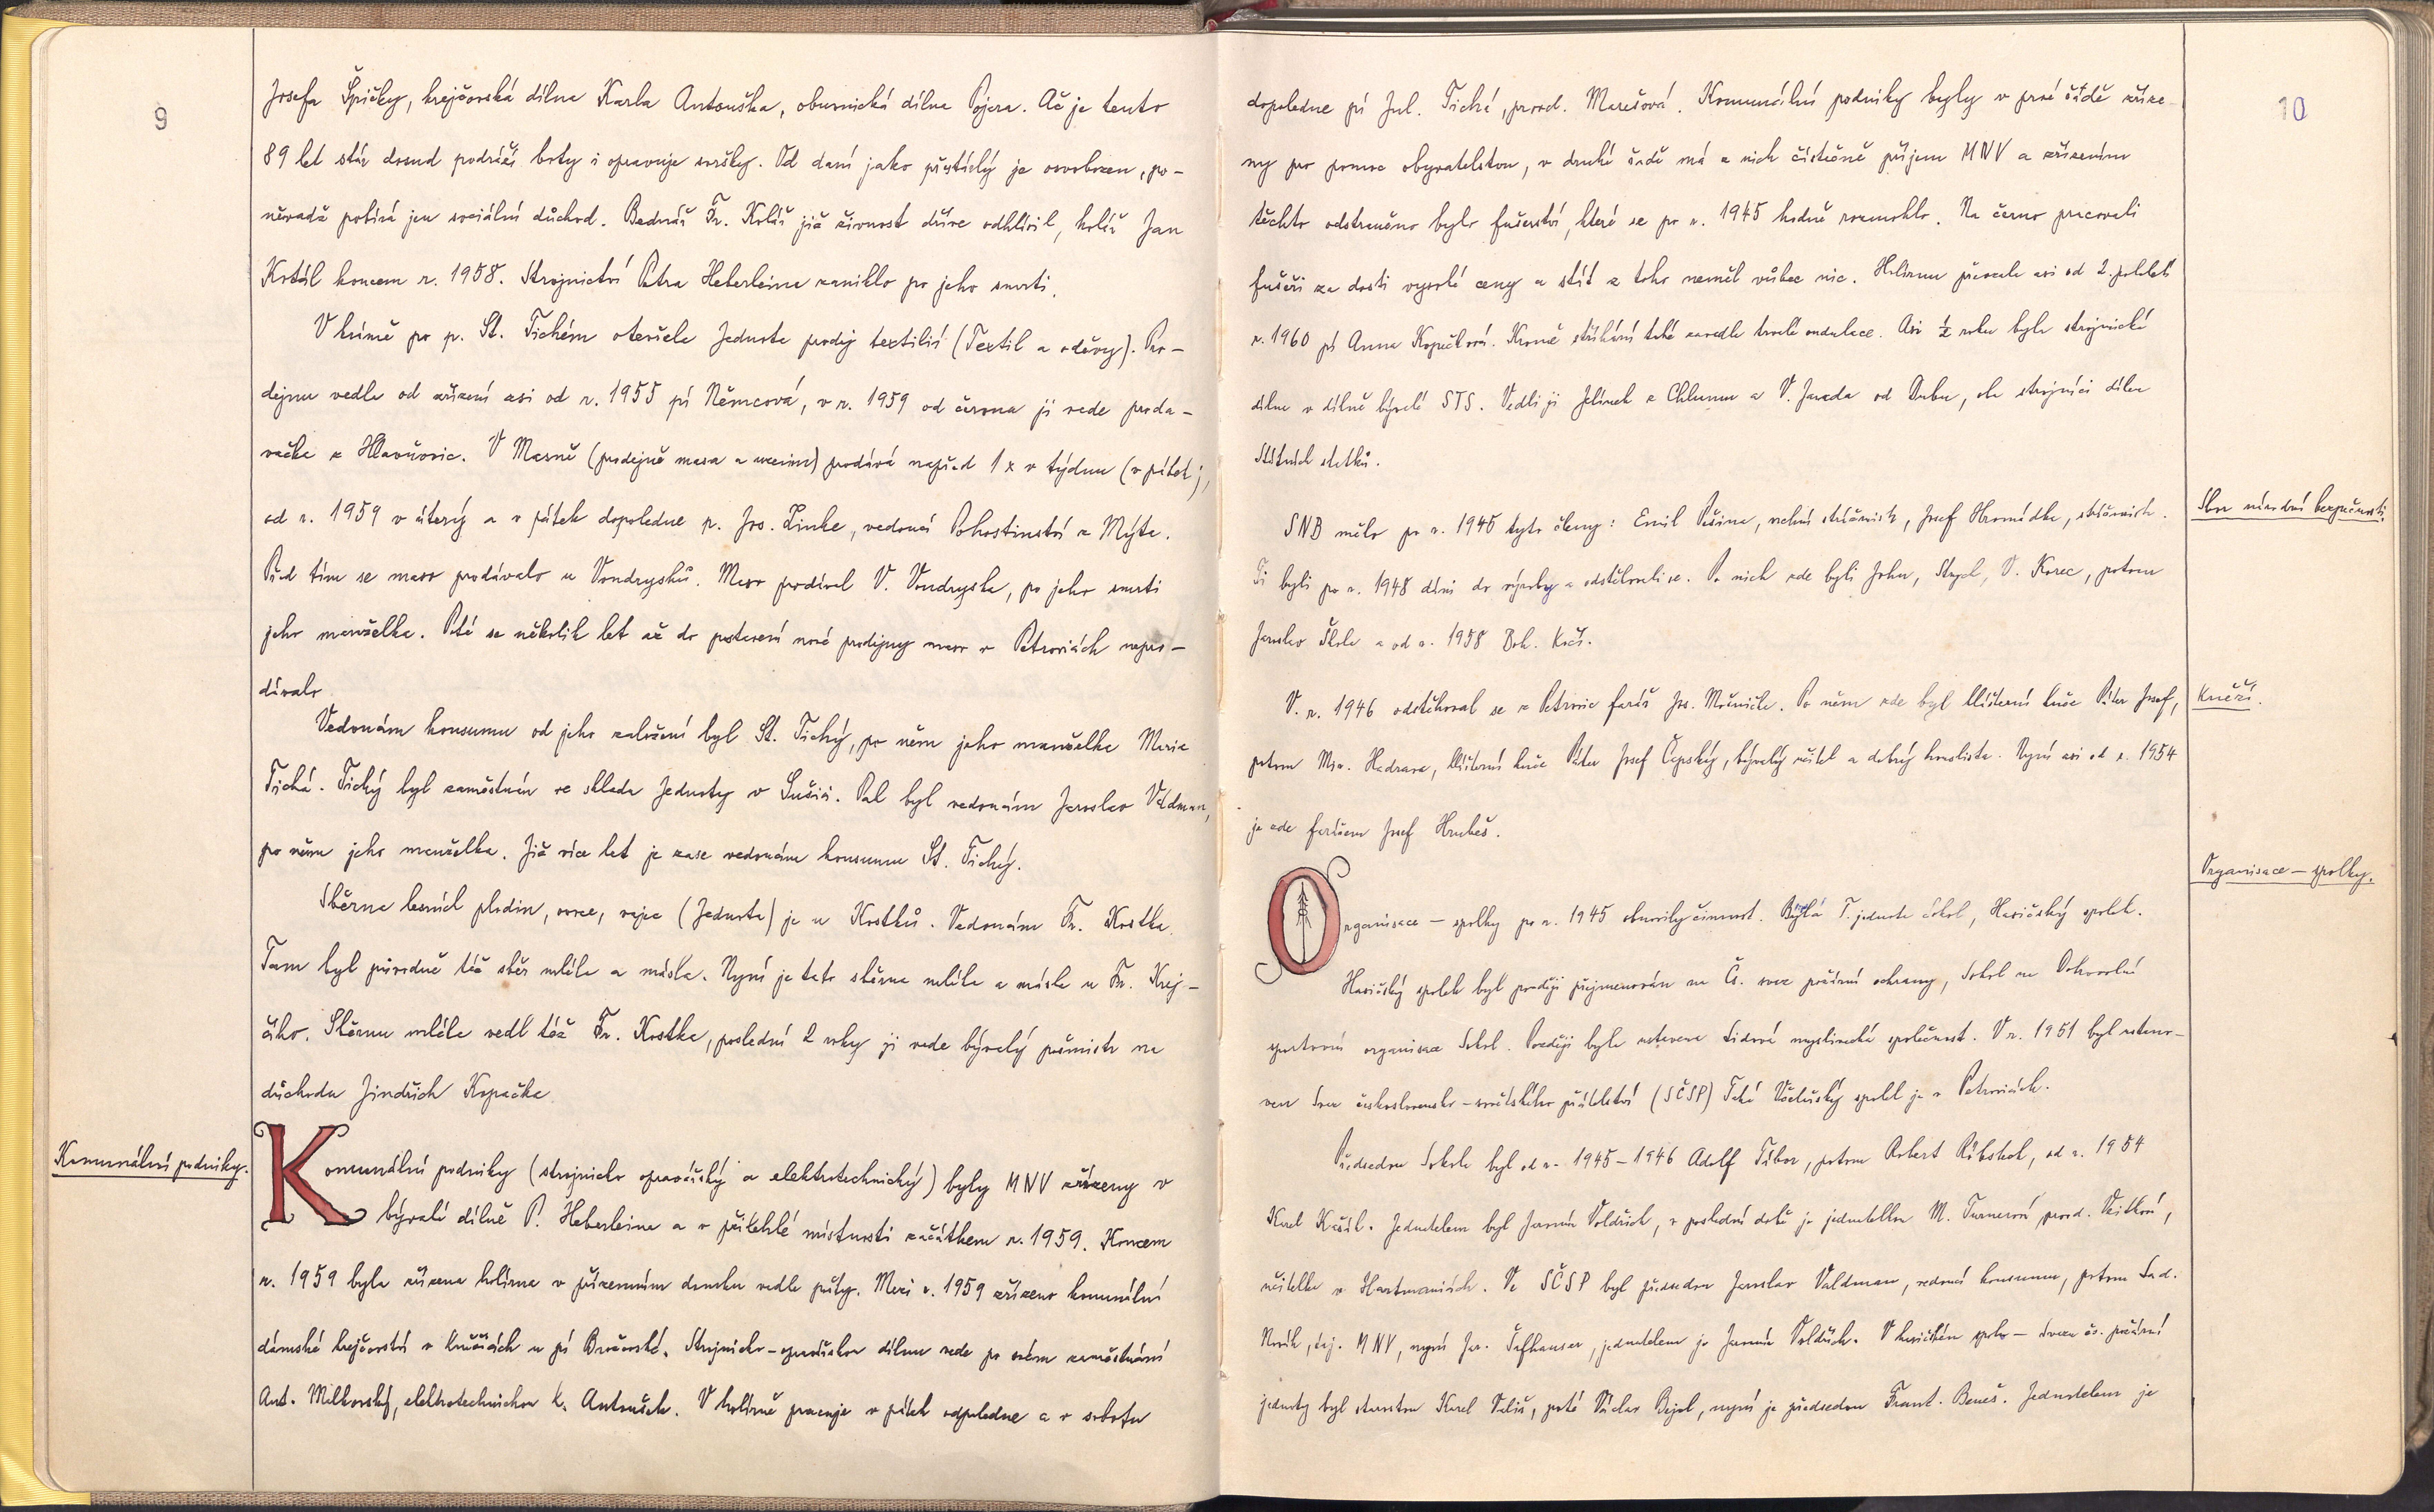 9
Josefa Špičky, krejčovská dílna Karla Antouška, obuvnická dílna Pojera. Ač je tento
89 let stár dosud podráží boty i opravuje svršky. Od daní jako přestárlý je osvobozen, po-
něvadž pobírá jen sociální důchod. Bednář Fr. Kolář již živnost dříve odhlásil, kolář Jan
Kotál koncem r. 1958. Strojnictví Petra Heberleina zaniklo po jeho smrti.
V krámě po p. St. Tichém otevřela Jednota prodej textilií (Textil a oděvy). Pro-
dejnu vedla od zřízení asi od r. 1955 pí Němcová, v r. 1959 od června ji vede proda-
vačka z Hlavňovic. V Masně (prodejně masa a uzenin) prodává napřed 1 x v týdnu (v pátek),
od r. 1959 v úterý a v pátek dopoledne p. Jos. Linke, vedoucí Pohostinství z Mýta.
Před tím se maso prodávalo u Vondrysků. Maso prodával V. Vondryska, po jeho smrti
jeho manželka. Poté se několik let až do postavení nové prodejny maso v Petrovicích nepro-
dávalo
Vedoucím konsumu od jeho založení byl St. Tichý, po něm jeho manželka Marie
Tichá. Tichý byl zaměstnán ve skladu Jednoty v Sušici. Pak byl vedoucím Jaroslav Valdman,
po něm jeho manželka. Již více let je zase vedoucím konsumu St. Tichý.
Sběrna lesních plodin, ovoce, vejce (Jednota) je u Kostků. Vedoucím Fr. Kostka.
Tam byl původně též sběr mléka a másla. Nyní je tato sběrna mléka a másla u Fr. Krej-
čího. Sběrnu mléka vedl též Fr. Kostka, poslední 2 roky ji vede bývalý poštmistr na
důchodu Jindřich Kopačka.
Komunální podniky.
Komunální podniky (strojnicko opravářský a elektrotechnický) byly MNV zřízeny v
bývalé dílně P. Heberleina a v přilehlé místnosti začátkem r. 1959. Koncem
r. 1959 byla zřízena holírna v přízemním domku vedle pošty. Mezi r. 1959 zřízeno komunální
dámské krejčovství v Kněžicích u pí Brožovské. Strojnicko-opravářskou dílnu vede po svém zaměstnání
Ant. Milkovský, elektrotechnickou K. Antoušek. V holírně pracuje v pátek odpoledne a v sobotu
10
dopoledne pí Jul. Tichá, provd. Marešová. Komunální podniky byly v prvé řadě zříze-
ny pro pomoc obyvatelstvu, v druhé řadě má z nich částečně příjem MNV a zřízením
těchto odstraněno bylo fušerství, které se po r. 1945 hodně rozmohlo. Na černo pracovali
fušeři za dosti vysoké ceny a stát z toho neměl vůbec nic. Holírnu převzala asi od 2. pololetí
r. 1960 pí Anna Kopačková. Kromě stříhání také zavedla trvalé ondulace. Asi ½ roku byla strojnická
dílna v dílně bývalé STS. Vedli ji Jelínek z Chlumu a V. Janda od Dubu, oba strojníci dílen
Státních statků.
Sbor národní bezpečnosti.
SNB mělo po r. 1945 tyto členy: Emil Pešina, vrchní strážmistr, Josef Hromádka, strážmistr.
Ti byli po r. 1948 dáni do výroby a odstěhovali se. Po nich zde byli John, Stupl, V. Korec, potom
Jaroslav Škola a od r. 1958 Boh. Kočí.
Kněží.
V. r. 1946 odstěhoval se z Petrovic farář Jos. Močnička. Po něm zde byl klášterní kněz Páter Josef,
potom Mir. Hadrava, klášterní kněz Páter Josef Čepský, bývalý učitel a dobrý houslista. Nyní asi od r. 1954
je zde farářem Josef Hrubeš.
Organisace – spolky.
Organisace – spolky po r. 1945 obnovily činnost. Bývalá T. jednota Sokol, Hasičský spolek.
Hasičský spolek byl později přejmenován na Čs. svaz požární ochrany, Sokol na Dobrovolní
sportovní organisace Sokol. Později byla ustavena Lidová myslivecká společnost. V r. 1951 byl ustano-
ven Svaz československo-sovětského přátelství (SČSP) Také Včelařský spolek je v Petrovicích.
Předsedou Sokola byl od r. 1945–1946 Adolf Tibor, potom Robert Růbskol, od r. 1954
Karel Kašál. Jednatelem byl Jaromír Voldřich, v poslední době je jednatelkou M. Turnerová provd. Vaitková,
učitelka v Hartmanicích. Ve SČSP byl předsedou Jaroslav Valdman, vedoucí konsumu, potom Lad.
Novák, taj. MNV, nyní Jar. Šafhauser, jednatelem je Jaromír Voldřich. V hasičském spolu – svazu čs. požární
jednoty byl starostou Karel Vališ, poté Václav Bejol, nyní je předsedou Frant. Beneš. Jednatelem je